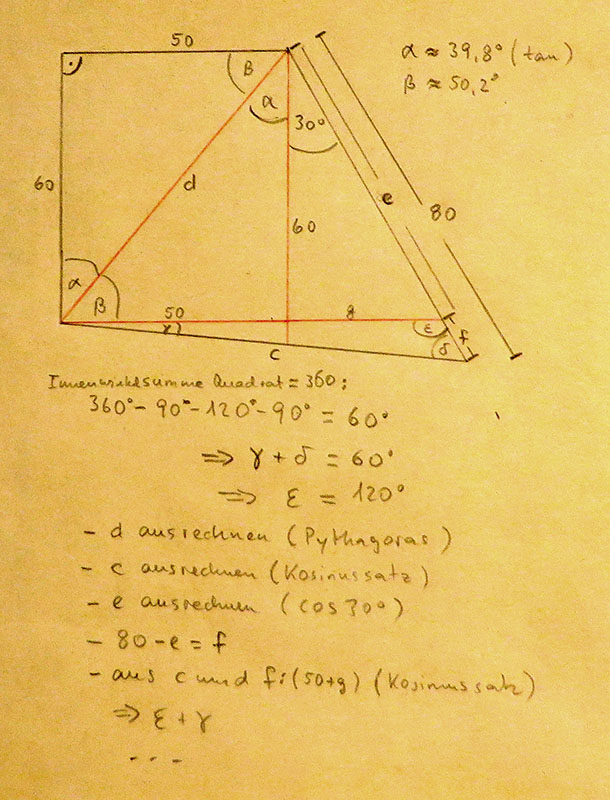 50
α ≈ 39,8° (tan)
β ≈ 50,2°
β
α
30°
60
d
e
80
60
α
β
50
g
γ
ε
f
δ
c
Innenwinkelsumme Quadrat = 360:
360° - 90° - 120° - 90° = 60°
⇒ γ + δ = 60°
⇒ ε = 120°
- d ausrechnen (Pythagoras)
- c ausrechnen (Kosinussatz)
- e ausrechnen (cos 30°)
- 80 - e = f
- aus c und f: (50+g) (Kosinussatz)
⇒ ε + γ
...